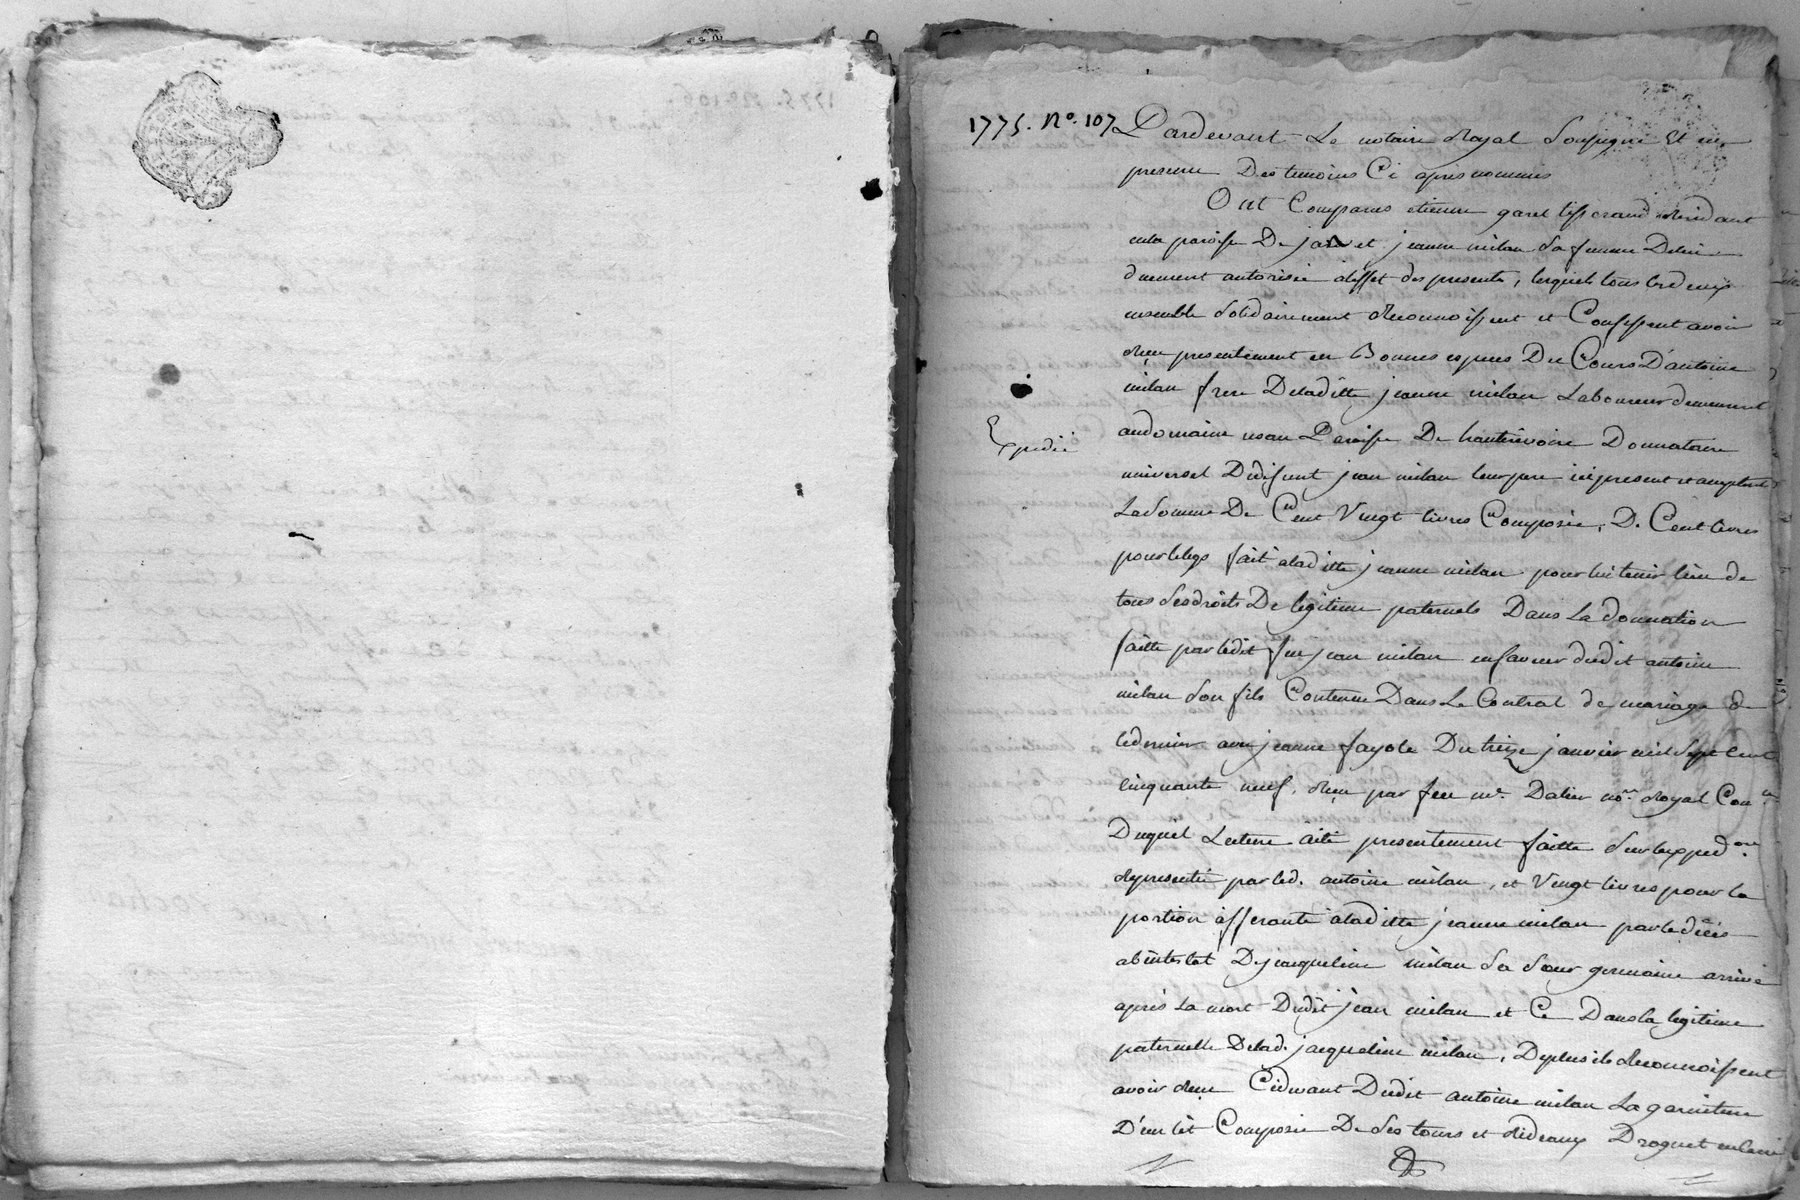 1775. No. 107
Pardevant Le notaire Royal Soussigné Et en
presence Des temoins Ci apres nommés
Ont Comparus etienne garel tisserand residant
enla paroisse De jas et jeanne milan sa femme Delui
duement autorisée aleffet des presentes, lesquels tous lesdeux
ensemble solidairement Reconnoissent et Confessent avoir
Reçu presentement en Bonnes especes Du Cours D'antoine
milan frere Deladitte jeanne milan Laboureur demeurant
audomaine Paroisse De hauterivoire Donnataire
Expedié
universel Dudefunt jean milan leur pere ici present et acceptant
La somme De Cent Vingt livres Composée, De Cent livres
pour lelegs fait aladitte jeanne milan pour lui tenir lieu de
tous ses droits De legitime paternels Dans La donnation
faitte par ledit feu jean milan enfaveur dudit antoine
milan son fils Contenue Dans Le Contrat de mariage de
cedernier avec jeanne fayole Du treize janvier mil sept Cent
cinquante neuf, Reçu par feu me. Dalier nore. Royal
Duquel Lecture aété presentement faitte surlexpedon.
Representée par led. antoine milan, et Vingt livres pour la
portion afferante aladitte jeanne milan par le décés
abintestat De jacqueline milan sa sœur germaine arrivé
après La mort Dudit jean milan et Ce Dans la legitime
paternelle Delad. jacqueline milan, Deplus ils Reconnoissent
avoir Reçu Cidevant Dudit antoine milan La garniture
D'un lit Composée De ses tours et Rideaux Droguet